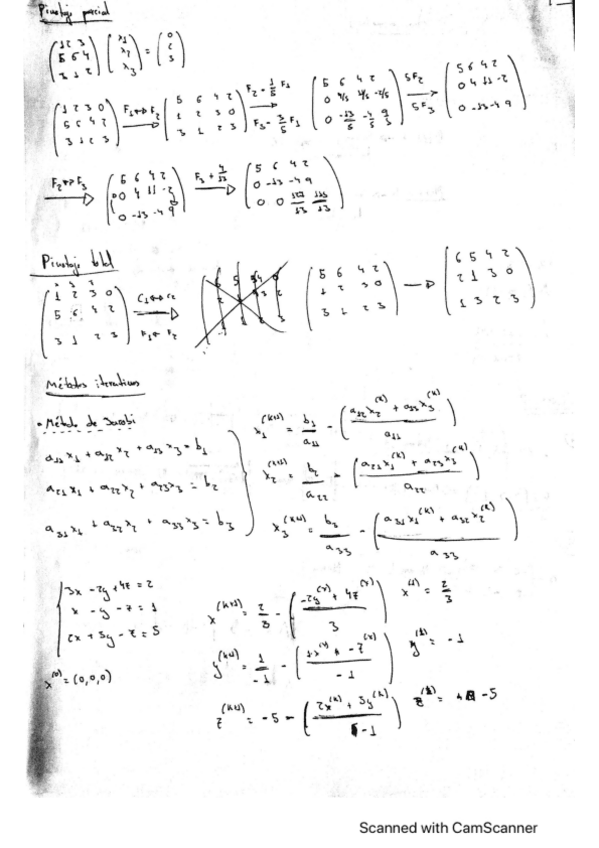 Pivotaje parcial
(1 2 3 / 5 6 4 / 3 1 2) (x1 / x2 / x3) = (0 / 2 / 3)
(1 2 3 0 / 5 6 4 2 / 3 1 2 3) F1↔F2 → (5 6 4 2 / 1 2 3 0 / 3 1 2 3) F2 - 1/5 F1, F3 - 3/5 F1 → (5 6 4 2 / 0 4/5 11/5 -2/5 / 0 -13/5 -2/5 9/5) 5F2, 5F3 → (5 6 4 2 / 0 4 11 -2 / 0 -13 -4 9)
F2↔F3 → (5 6 4 2 / 0 4 11 -2 / 0 -13 -4 9) F3 + 4/13 → (5 6 4 2 / 0 -13 -4 9 / 0 0)
Pivotaje total
(1 2 3 0 / 5 6 4 2 / 3 1 2 3) C1↔C2, F1↔F2 → (5 6 4 2 / 1 2 3 0 / 3 1 2 3) → (6 5 4 2 / 2 1 3 0 / 1 3 2 3)
Métodos iterativos
Método de Jacobi
a11x1 + a12x2 + a13x3 = b1
a21x1 + a22x2 + a23x3 = b2
a31x1 + a22x2 + a33x3 = b3
x1^(k+1) = b1/a11 - ((a12x2^(k) + a13x3^(k))/a11)
x2^(k+1) = b2/a22 - ((a21x1^(k) + a23x3^(k))/a22)
x3^(k+1) = b3/a33 - ((a31x1^(k) + a32x2^(k))/a33)
3x - 2y + 4z = 2
x - y - z = 1
2x + 5y - z = 5
x^(0) = (0,0,0)
x^(k+1) = 2/3 - ((-2y^(k) + 4z^(k))/3) x^(1) = 2/3
y^(k+1) = 1/-1 - ((1x^(k) - z^(k))/-1) y^(1) = -1
z^(k+1) = -5 - ((2x^(k) + 5y^(k))/-1) z^(1) = -5
Scanned with CamScanner